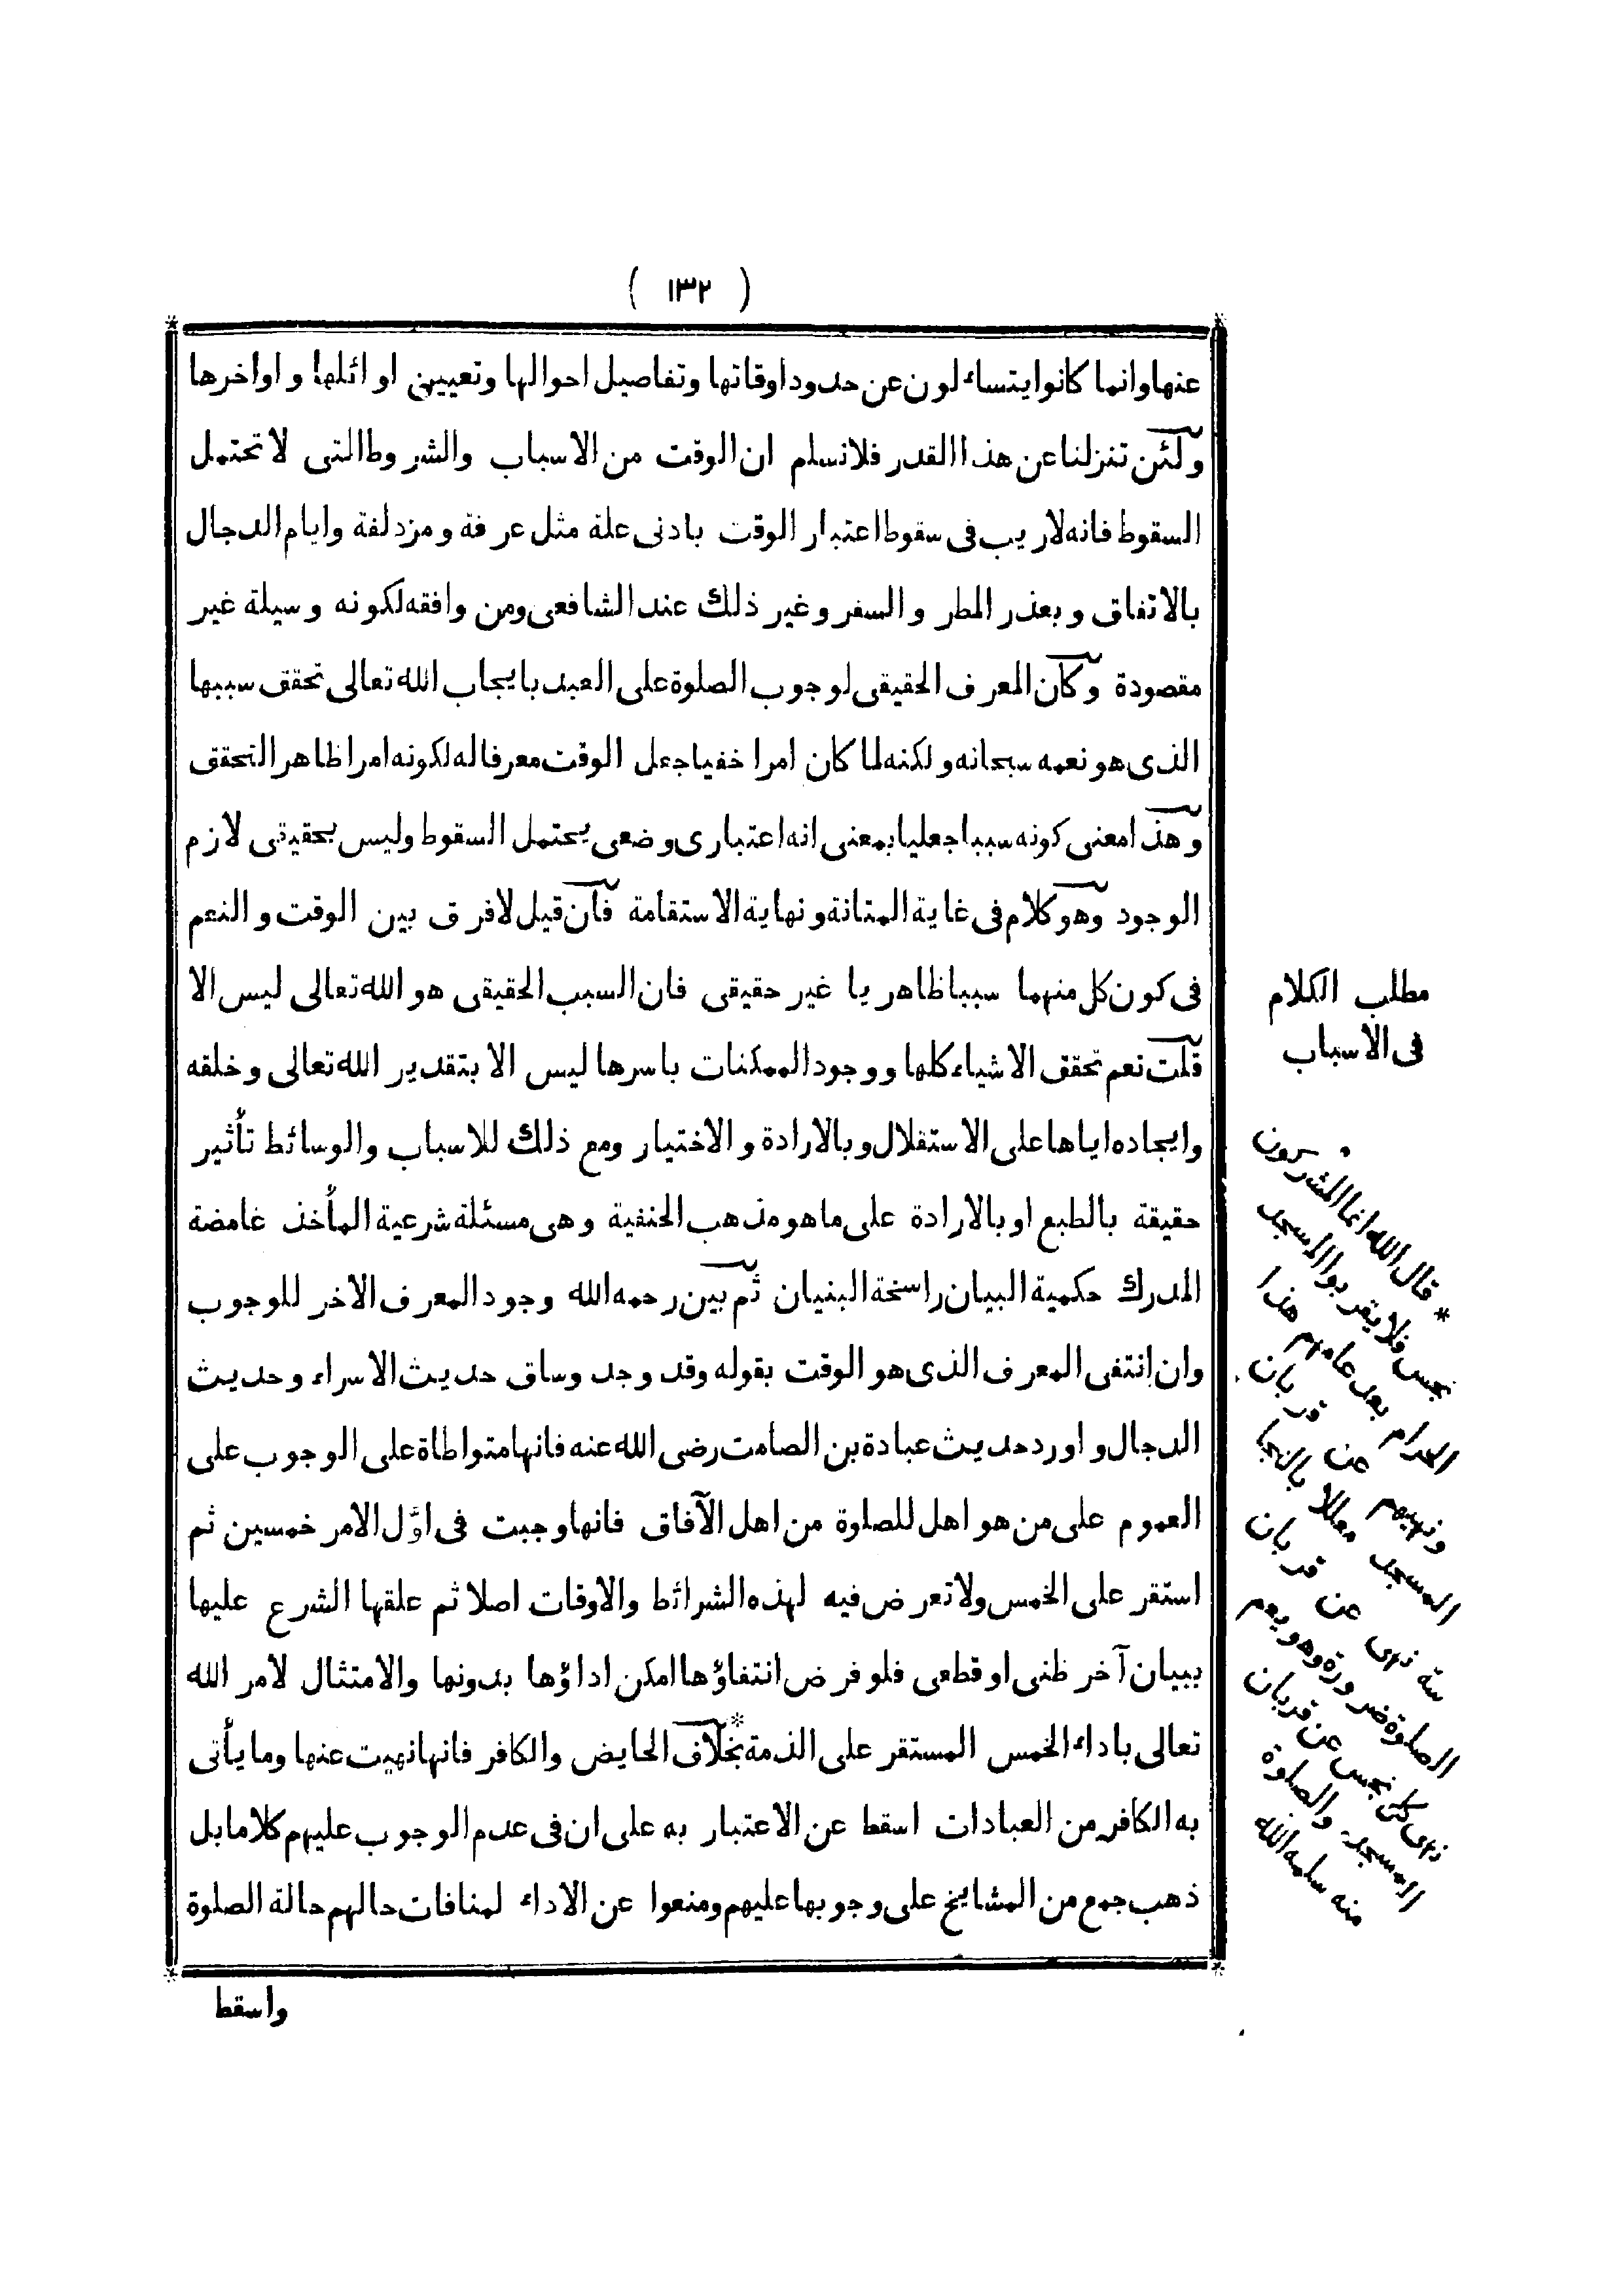 ( ١٣٢ )
عنها وانما كانوا يتساءلون عن حدود اوقاتها وتفاصيل احوالها وتعيين اوائلها واواخرها
ولئن تنزلنا عن هذا القدر فلا نسلم ان الوقت من الاسباب والشروط التى لا تحتمل
السقوط فانه لا ريب فى سقوط اعتبار الوقت بادنى علة مثل عرفة ومزدلفة وايام الدجال
بالاتفاق وبعذر المطر والسفر وغير ذلك عند الشافعى ومن وافقه لكونه وسيلة غير
مقصودة وكان المعرف الحقيقى لوجوب الصلوة على العبد بايجاب الله تعالى تحقق سببها
الذى هو نعمه سبحانه ولكنه لما كان امرا خفيا جعل الوقت معرفا له لكونه امرا ظاهر التحقق
وهذا معنى كونه سببا جعليا بمعنى انه اعتبارى وضعى يحتمل السقوط وليس بحقيقى لازم
الوجود وهو كلام فى غاية المتانة ونهاية الاستقامة فان قيل لا فرق بين الوقت والنعم
فى كون كل منهما سببا ظاهريا غير حقيقى فان السبب الحقيقى هو الله تعالى ليس الا
قلت نعم تحقق الاشياء كلها ووجود الممكنات باسرها ليس الا بتقدير الله تعالى وخلقه
وايجاده اياها على الاستقلال وبالارادة والاختيار ومع ذلك للاسباب والوسائط تأثير
حقيقة بالطبع او بالارادة على ما هو مذهب الحنفية وهى مسئلة شرعية المأخذ غامضة
المدرك حكمية البيان راسخة البنيان ثم بين رحمه الله وجود المعرف الاخر للوجوب
وان انتفى المعرف الذى هو الوقت بقوله وقد وجد وساق حديث الاسراء وحديث
الدجال واورد حديث عبادة بن الصامت رضى الله عنه فانها متواطاة على الوجوب على
العموم على من هو اهل للصلوة من اهل الآفاق فانها وجبت فى اوّل الامر خمسين ثم
استقر على الخمس ولا تعرض فيه لهذه الشرائط والاوقات اصلا ثم علقها الشرع عليها
ببيان آخر ظنى او قطعى فلو فرض انتفاؤها امكن اداؤها بدونها والامتثال لامر الله
تعالى باداء الخمس المستقر على الذمة * بخلاف الحايض والكافر فانها نهيت عنها وما يأتى
به الكافر من العبادات اسقط عن الاعتبار به على ان فى عدم الوجوب عليهم كلاما بل
ذهب جمع من المشايخ على وجوبها عليهم ومنعوا عن الاداء لمنافات حالهم حالة الصلوة
واسقط
مطلب الكلام
فى الاسباب
* قال الله انما المشركون
نجس فلا يقربوا المسجد
الحرام بعد عامهم هذا
ونهيهم عن قربان
المسجد معللا بالنجا
سة نهى عن قربان
الصلوة ضرورة وهو يعم
نهى كل نجس عن قربان
المسجد والصلوة
منه سلمه الله